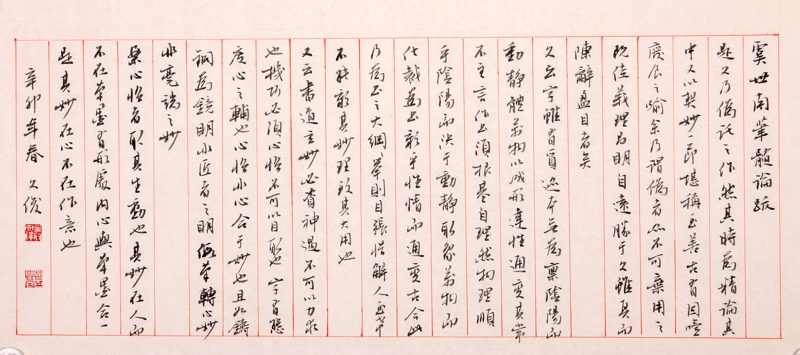 虞世南筆髓論跋
此文乃偽託之作然其時為精論其
中文以契妙一节堪稱至善古有因噎
廢食之喻余乃謂偽者亦不可棄用之
既佳義理名明目遠勝于文雖真而
陳辭盈目者矣
文云字雖有質迹本無為稟陰陽而
動靜體萬物以成形達性通變其常
不主言作書須根基自理然物理順
乎陰陽而決于動靜取象萬物而
化裁為書彰乎性情而通變古今此
乃為書之大綱舉則目張惜解人至罕
不能彰其妙理致其大用也
又云書道玄妙必資神遇不可以力求
也機巧必須心悟不可以目取也字有態
度心之輔也心悟非心合于妙也且如鑄
銅為鏡明非匠者之明假筆轉心妙
非毫端之妙
心悟者取其生動也其妙在人而
不在筆墨有形處內心與筆墨合一
是其妙在心不在作意也
辛卯年春 文俊